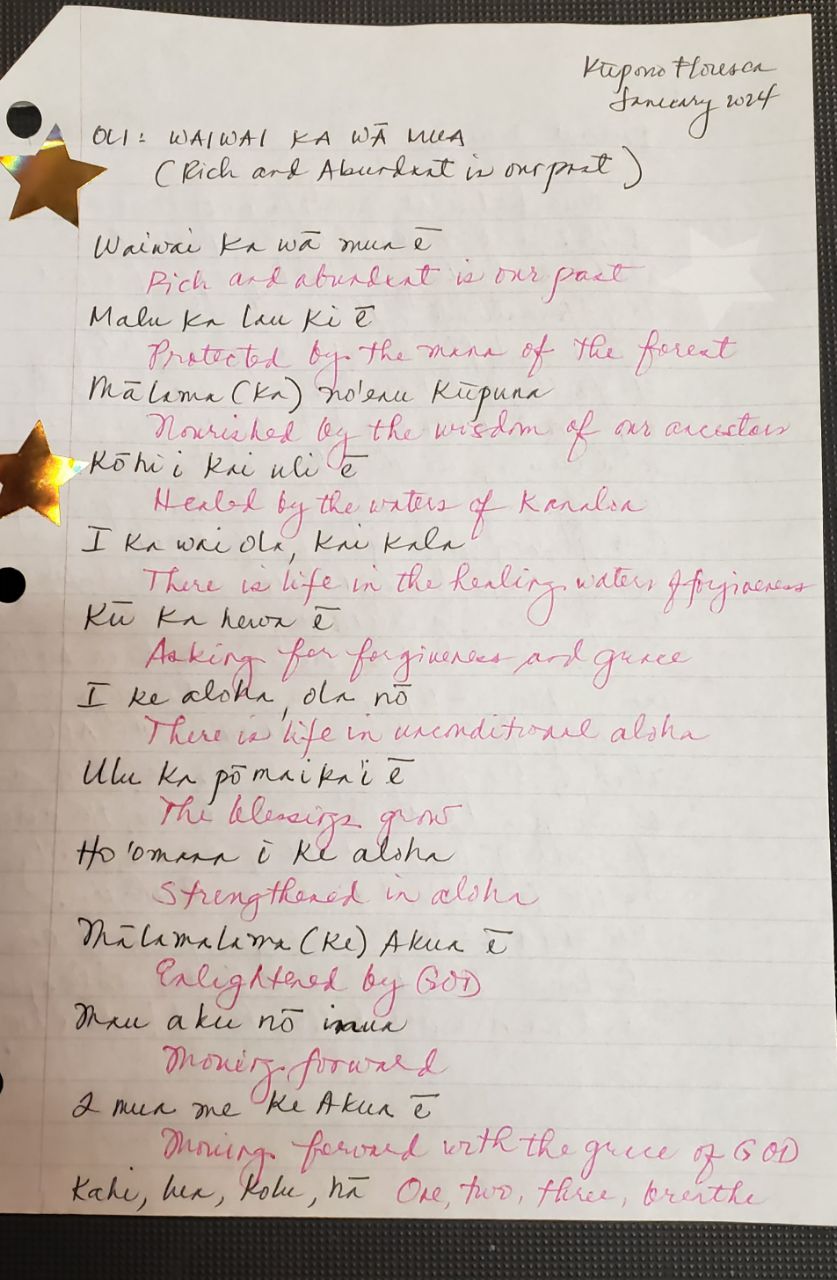 Kūpono Floresca
January 2024
OLI: WAIWAI KA WĀ MUA
(Rich and Abundant is our past)
Waiwai Ka wā mua ē
Rich and abundant is our past
Malu Ka lau Ki ē
Protected by the mana of the forest
Mālama (Ka) no'eau Kūpuna
Nourished by the wisdom of our ancestors
Kōhi i Kai uli ē
Healed by the waters of Kanaloa
I Ka wai ola, Kai Kala
There is life in the healing waters of forgiveness
Kū Ka hewa ē
Asking for forgiveness and grace
I Ke aloha, ola nō
There is life in unconditional aloha
Ulu Ka pōmaika'i ē
The blessings grow
Ho'omana i Ke aloha
Strengthened in aloha
Mālamalama (Ke) Akua ē
Enlightened by GOD
Mau aku nō imua
Moving forward
I mua me Ke Akua ē
Moving forward with the grace of GOD
Kahi, lua, Kolu, hā One, two, three, breathe